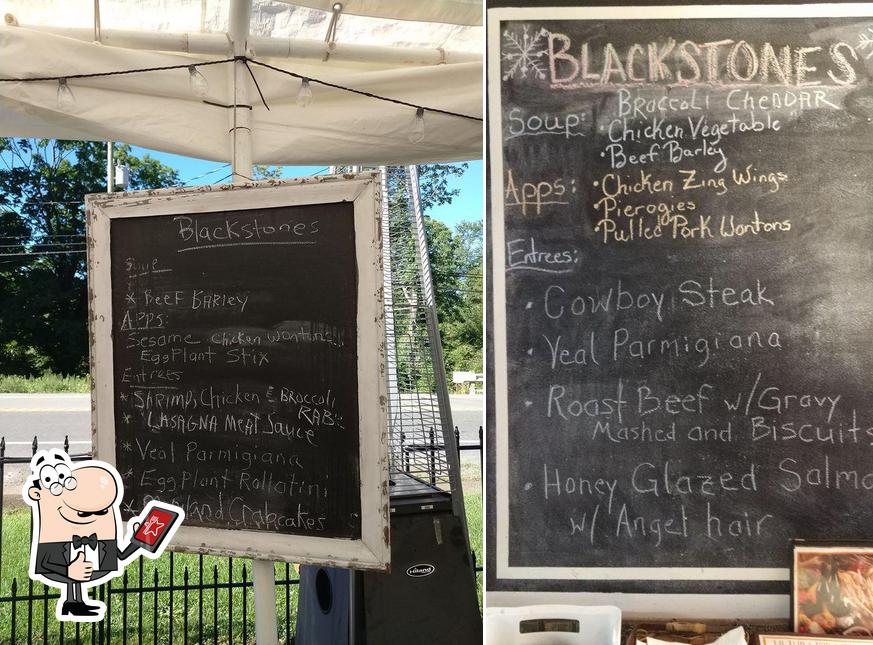 Blackstones
Soup
* BEEF BARLEY
APPS:
Sesame chicken wontons!!
EggPlant Stix
Entrees
* SHRIMP, Chicken & BROCCOLI
RABE
* LASAGNA MEAT SAUCE
* Veal Parmigiana
* EggPlant Rollatini
* land Crabcakes
Hiland
BLACKSTONES
BROCCOLI CHEDDAR
Soup: • Chicken Vegetable
• Beef Barley
Apps: • Chicken Zing Wings
• Pierogies
• Pulled Pork Wontons
Entrees:
• Cowboy Steak
• Veal Parmigiana
• Roast Beef w/Gravy
Mashed and Biscuits
• Honey Glazed Salmo
w/ Angel hair